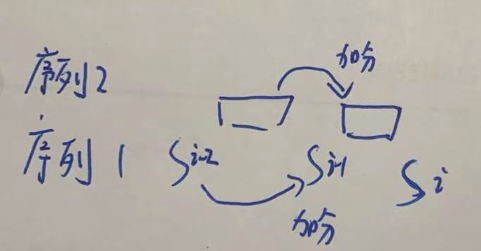 加分
序列2
序列1 Si-2 Si-1 Si
加分